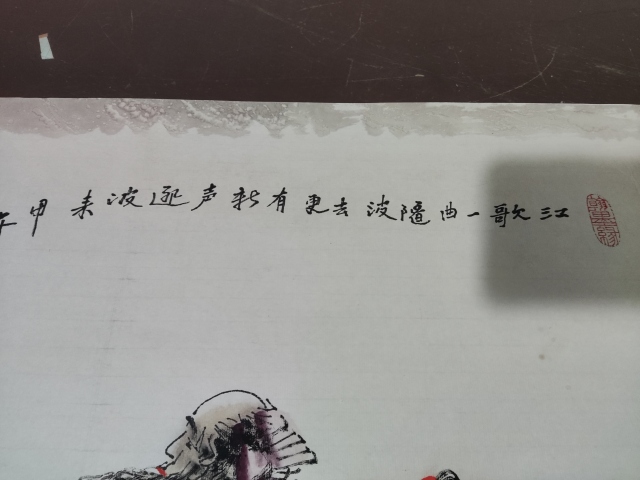 江歌一曲随波去更有新声逐波来甲午